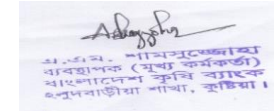 এ.এম. শামসুজ্জোহা
ব্যবস্থাপক (মূখ্য কর্মকর্তা)
বাংলাদেশ কৃষি ব্যাংক
শাখা, কুষ্টিয়া।